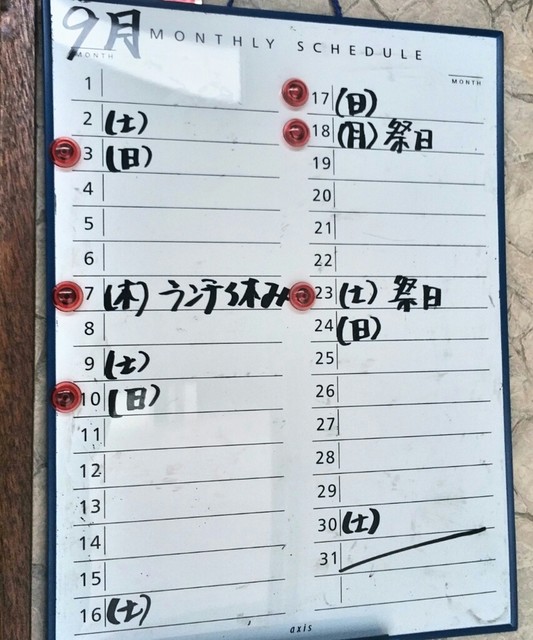 9月 MONTHLY SCHEDULE
MONTH
MONTH
1
2 (土)
3 (日)
4
5
6
7 (木) ランチ休み
8
9 (土)
10 (日)
11
12
13
14
15
16 (土)
17 (日)
18 (月) 祭日
19
20
21
22
23 (土) 祭日
24 (日)
25
26
27
28
29
30 (土)
31
axis